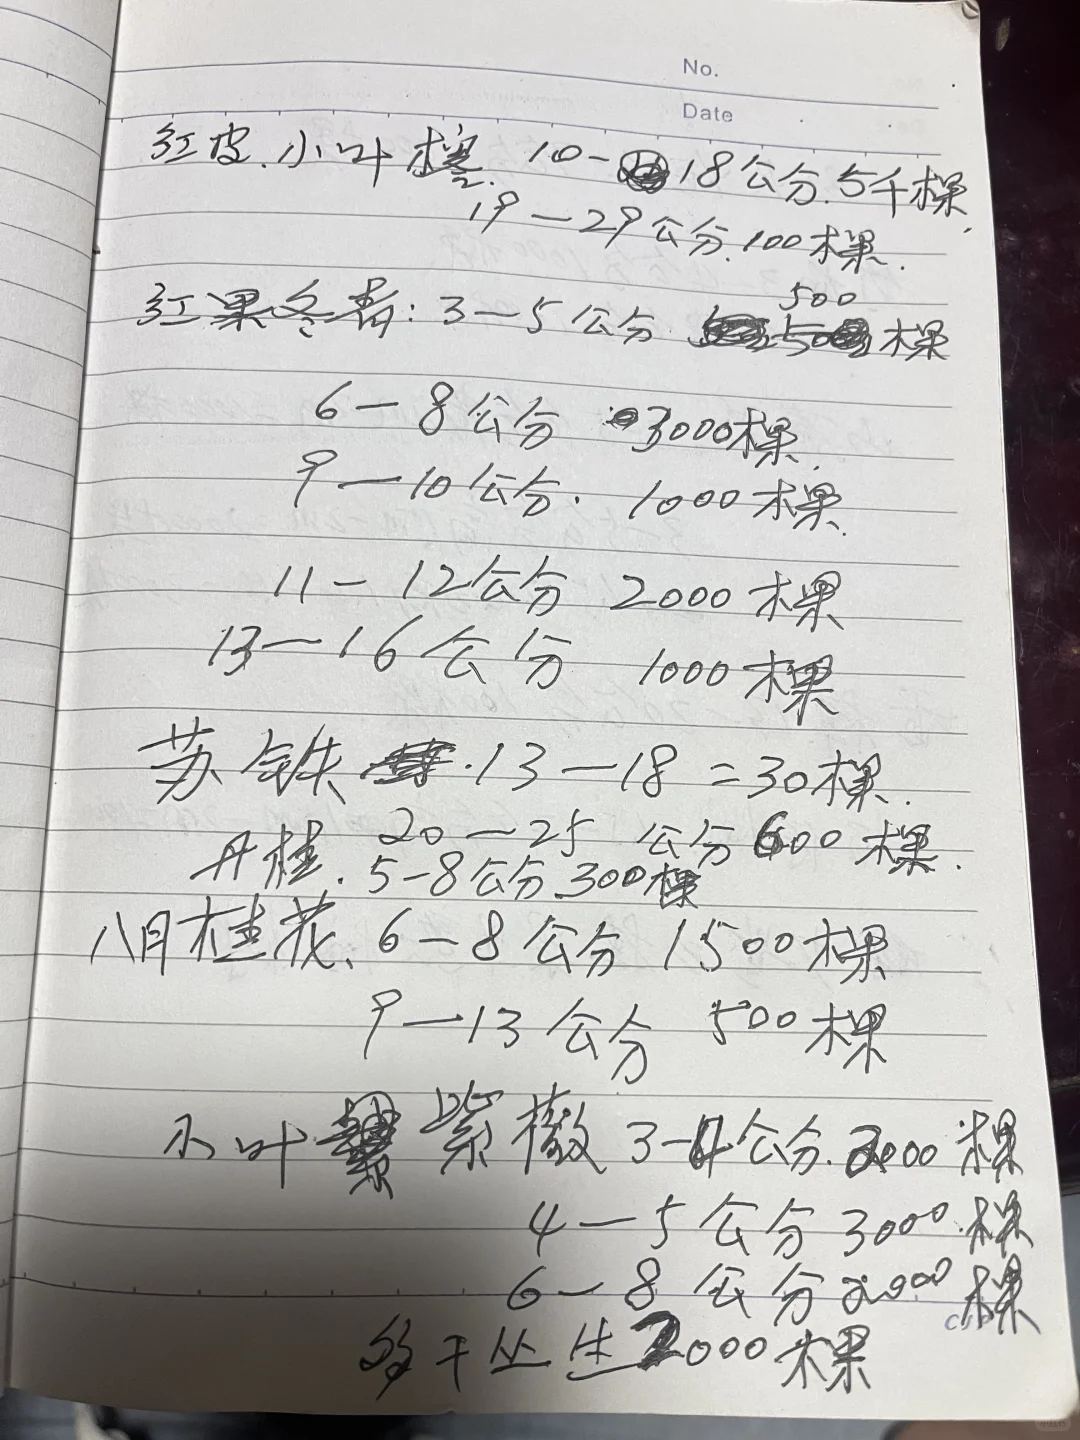 No.
Date
红皮.小叶榄. 10-18公分.5千棵,
19-29公分.100棵.
红果冬青:3-5公分 500棵
6-8公分 3000棵.
9-10公分. 1000棵.
11-12公分 2000棵
13-16公分 1000棵
苏铁.13-18=30棵.
20-25公分600棵.
丹桂.5-8公分.300棵
八月桂花、6-8公分 1500棵
9-13公分 500棵
小叶紫薇3-4公分.2000棵
4-5公分3000.棵
6-8公分2000棵
多干丛生2000棵